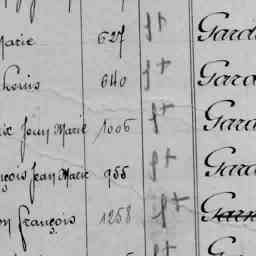 Marie 627 ft Gard
Louis 640 ft Gard
Jean Marie 1006 ft Gard
çois Jean Marie 955 ft Gard
on François 1258 ft Gar